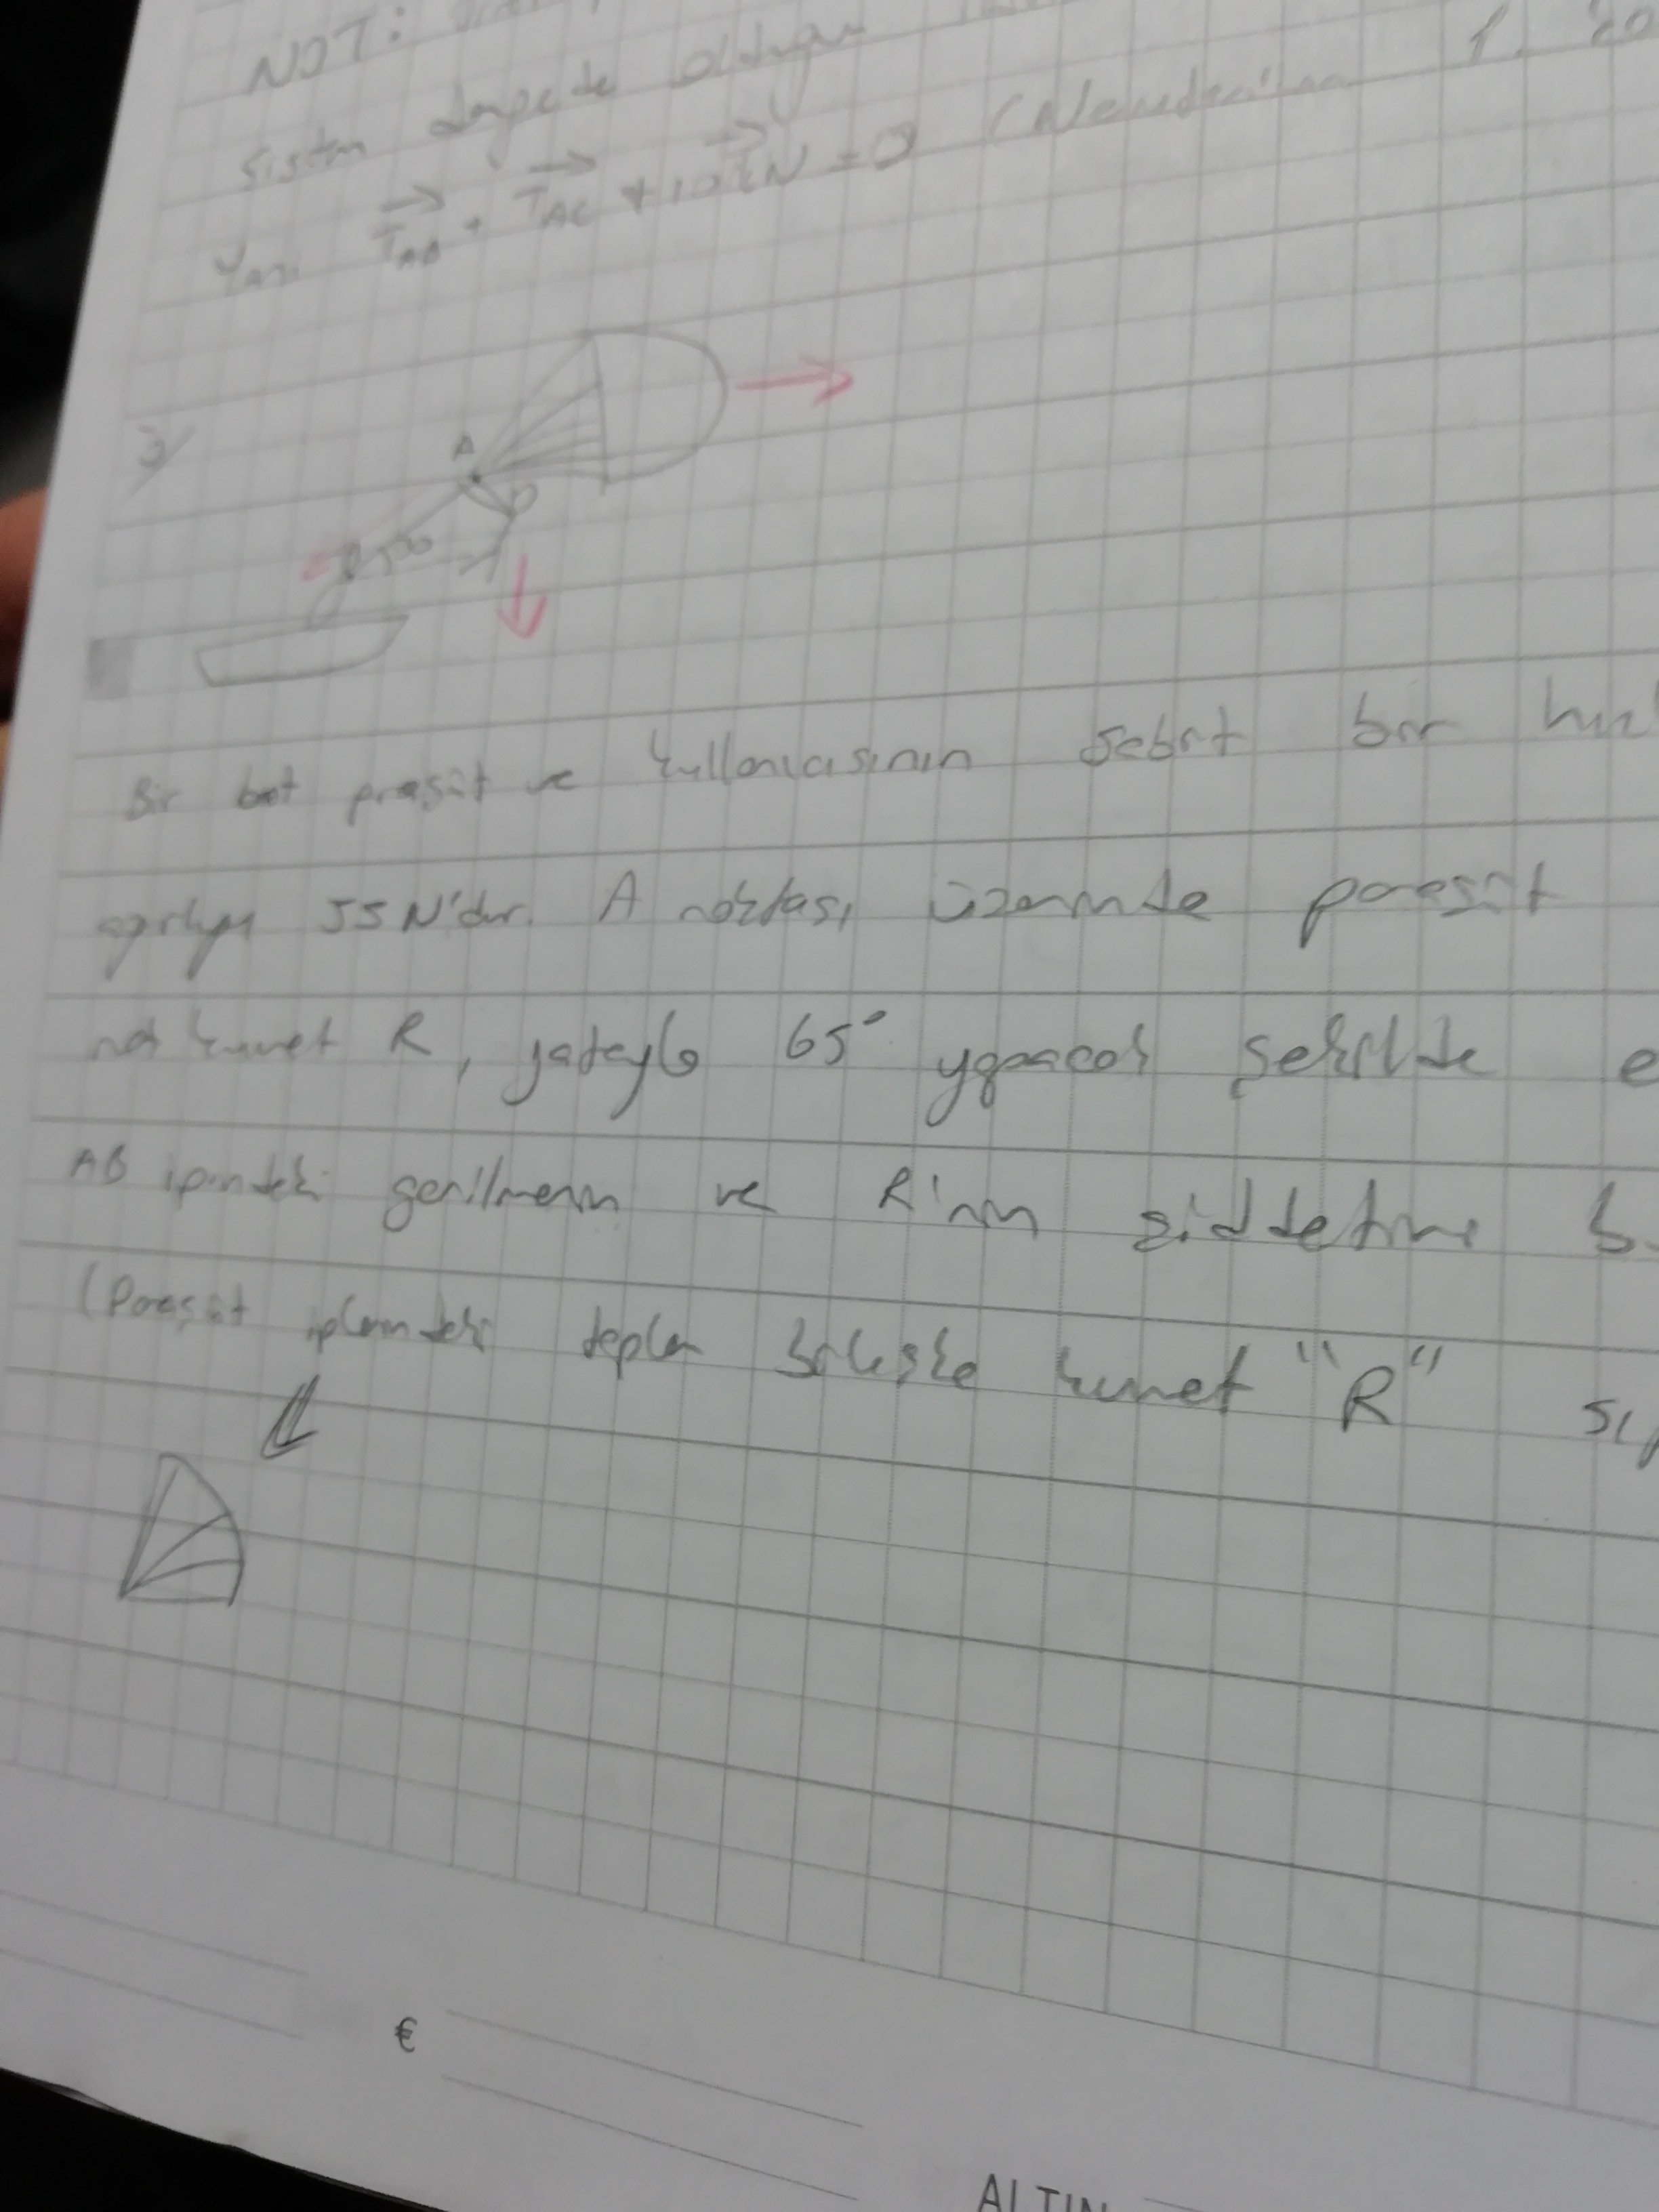 NOT:
Sistem dengede olduğun
Yani TAB + TAC + 10kN = 0
3/
A
Bir bot paraşüt ve kullanıcısının sabit bir hız
ağırlığı 55N'dur. A noktası üzerinde paraşüt
kuvvet R, yatayla 65° yapacak şekilde e
AB ipindeki gerilmenin ve R'nin şiddetine b
(Paraşüt iplerindeki toplam bileşke kuvvet "R"
€
ALTIN